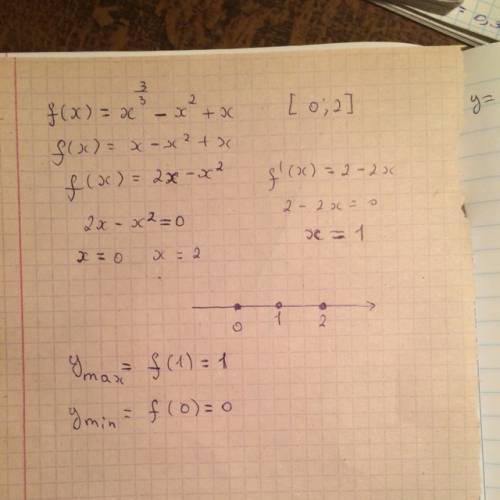 f(x) = x^(3/3) - x² + x [0;2]
f(x) = x - x² + x
f(x) = 2x - x² f'(x) = 2 - 2x
2x - x² = 0 2 - 2x = 0
x = 0 x = 2 x = 1
0 1 2
y max = f(1) = 1
y min = f(0) = 0
y=